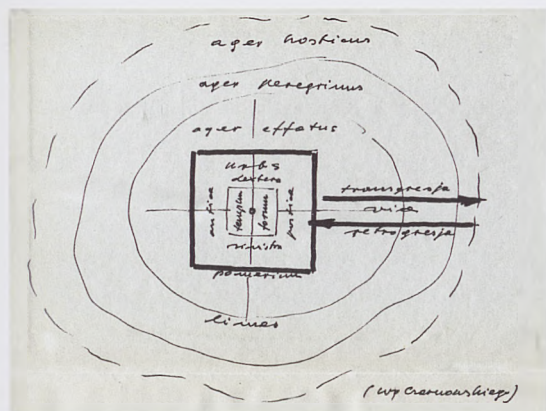 ager hosticus
ager peregrinus
ager effatus
urbs
dextera
antica
templum
forum
postica
sinistra
pomerium
limes
transgresja
via
retrogresja
(wg Czarnowskiego)